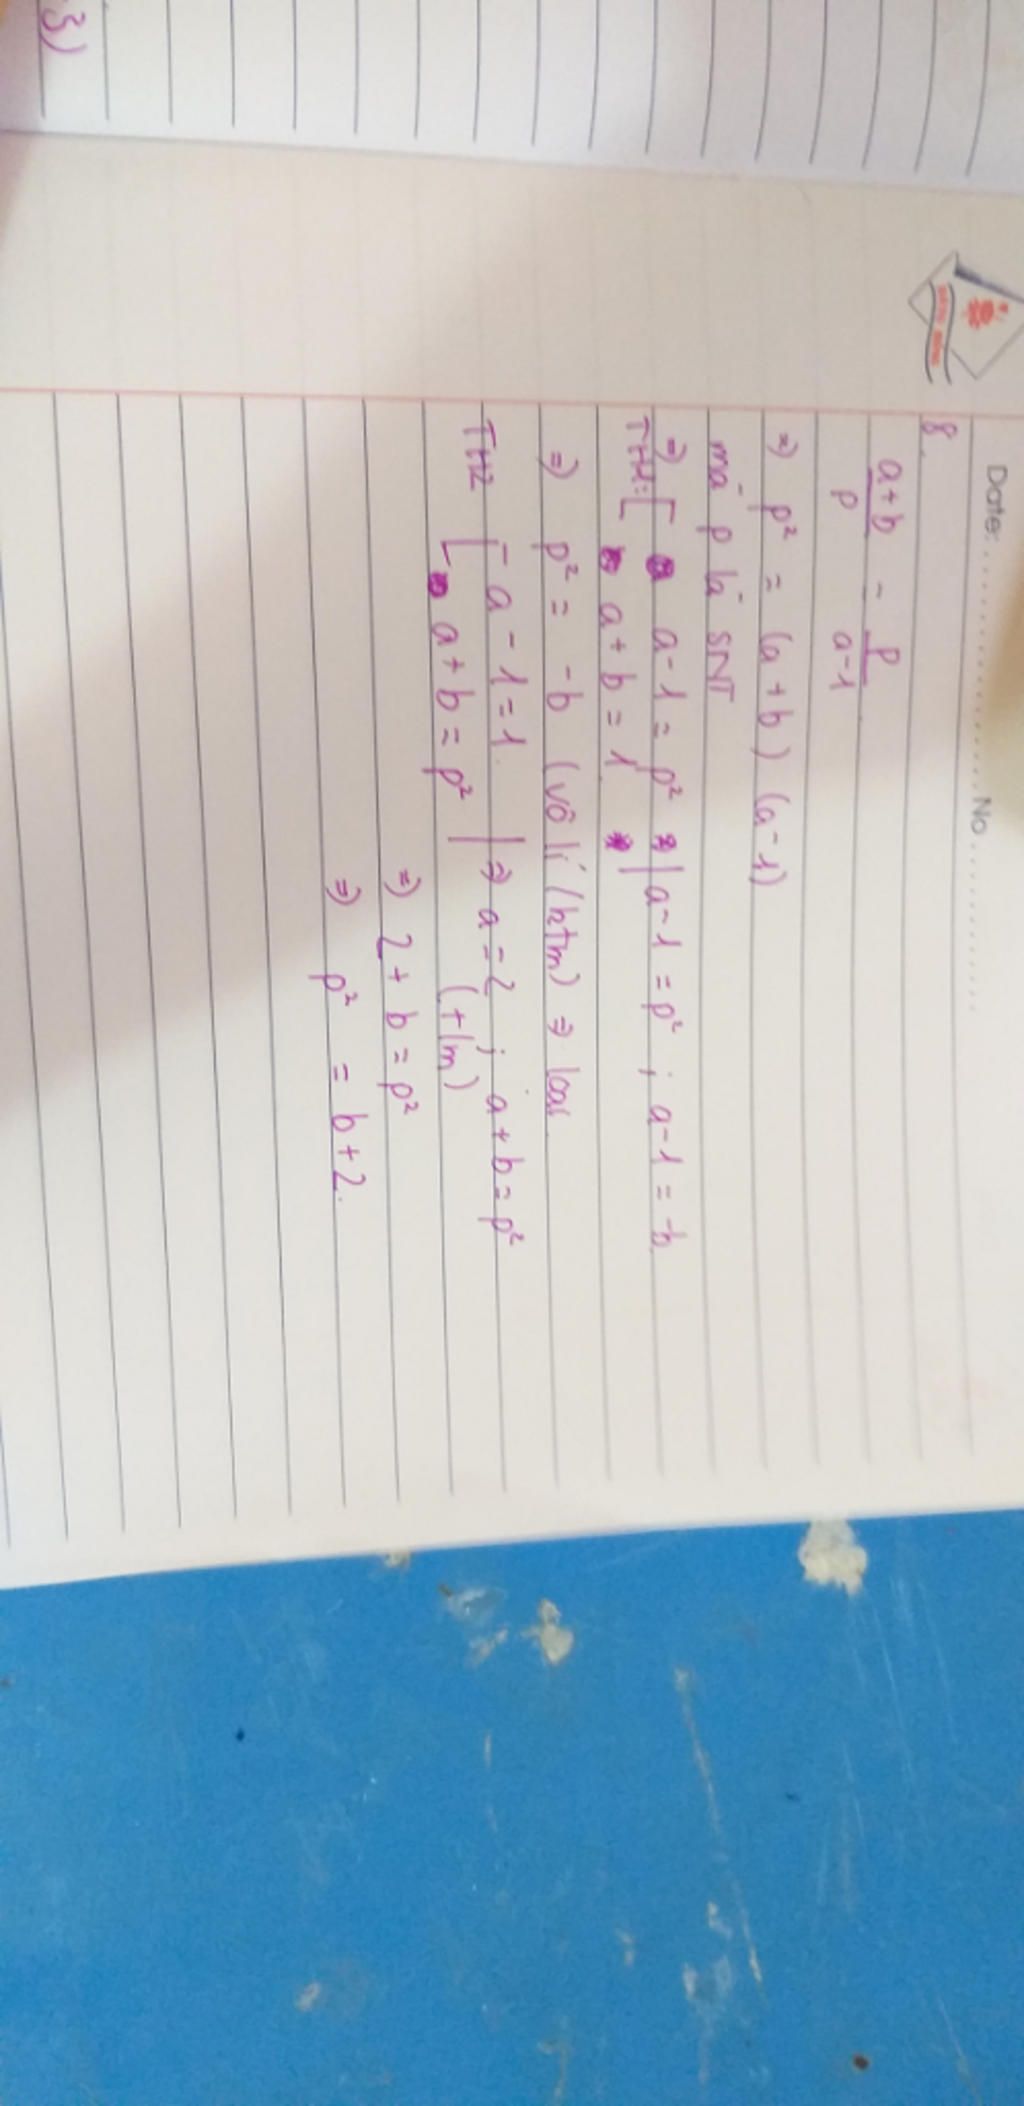 Date: No
8.
a+b/p = p/a-1
=) p² = (a+b) (a-1)
mà p là SNT
=) [ a-1 = p² | a-1 = p² ; a-1 = -b
TH1: [ a+b = 1
=) p² = -b (vô lí / ktm) => loại
TH2 [ a-1 = 1 | => a = 2 ; a+b = p²
a+b = p² | (t/m)
=) 2+b = p²
=) p² = b+2.
3)